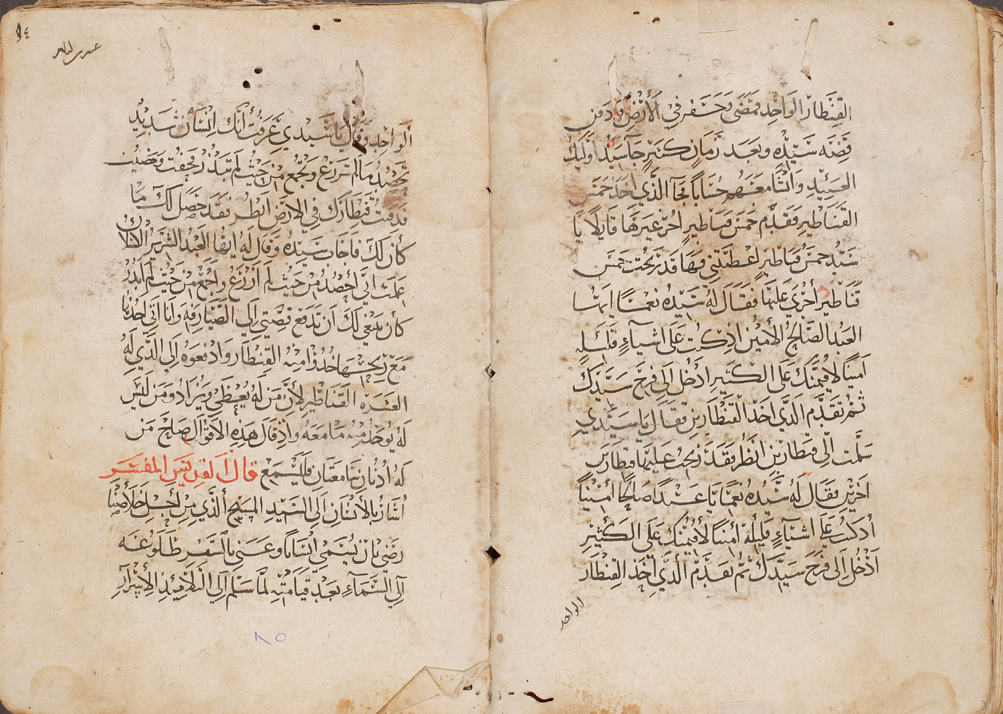 القنطار الواحد فمضى وحفر في الأرض ودفن
فضه سيده وبعد زمان كثير جا سيد اوليك
العبيد وانشا معهم حسابا فجا الذي اخذ خمس
القناطير فقدم خمس قناطير اخر غيرها قايلا يا
سيد خمس قناطير اعطيتني وهاقد ربحت خمس
قناطير اخرى عليها فقال له سيده نعما ايها
العبد الصالح الأمين اذ كنت على اشياء قليله
امينا لاقيمنك على الكثير ادخل الى فرح سيدك
ثم تقدم الذي اخذ القنطارين فقال يا سيدي
سلمت الى قنطارين انظر فقد ربحت عليها قنطارين
اخرين فقال له سيده نعما يا عبدا صالحا امينا
أذ كنت على اشياء قليلة أمينا لأقيمنك على الكثير
أدخل الى فرح سيدك ثم تقدم الذي أخذ القنطار
الواحد
٩٤
الواحد وقال يا سيدي عرفت أنك انسان شديد
تحصد ما لم تزرع وتجمع من حيث لم تبذر فخفت ومضيت
فدفنت قنطارك في الارض انظر فقد حصل لك ما
كان لك فاجاب سيده وقال له ايها العبد الشرير الكسلان
علمت اني أحصد من حيث لم ازرع واجمع من حيث لم ابذر
كان ينبغي لك ان تدفع فضتي الى الصيارفه وانا اتي اخذها
مع ربحها خذوا منه القنطار وادفعوه الى الذي له
العشرة القناطير لأن من له يعطى ويزاد ومن ليس
له يوخذ منه ما معه واذ قال هذه الاقوال صاح من
له أدنان سامعتان فليسمع قال القديس المفسر
أشار بالأنسان الى السيد المسيح الذي من اجل خلاصنا
رضى بان يسمى انسانا وعنى بالسفر طلوعه
الى السماء بعد قيامته لما سلم الى التلاميذ الأسرار
٨٥